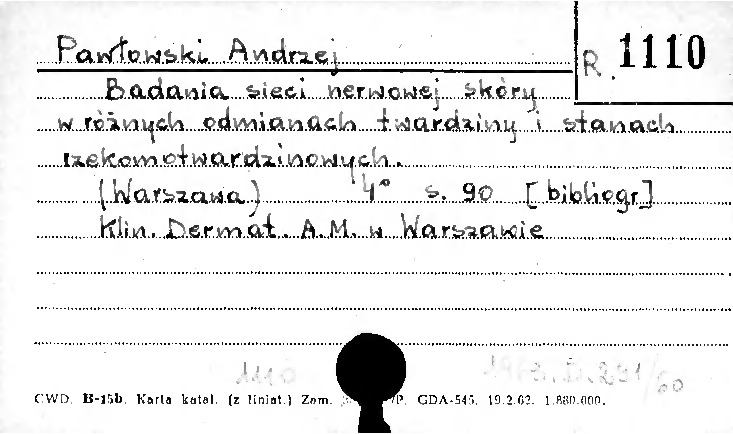 Pawłowski Andrzej
R. 1110
Badania sieci nerwowej skóry
w różnych odmianach twardziny i stanach
rzekomotwardzinowych.
(Warszawa) 4° s. 90 [bibliogr]
Klin. Dermat. A.M. w Warszawie
1110
CWD. B-15b. Karta katal. (z liniat.) Zam. GDA-545. 19.2.62. 1.880.000.